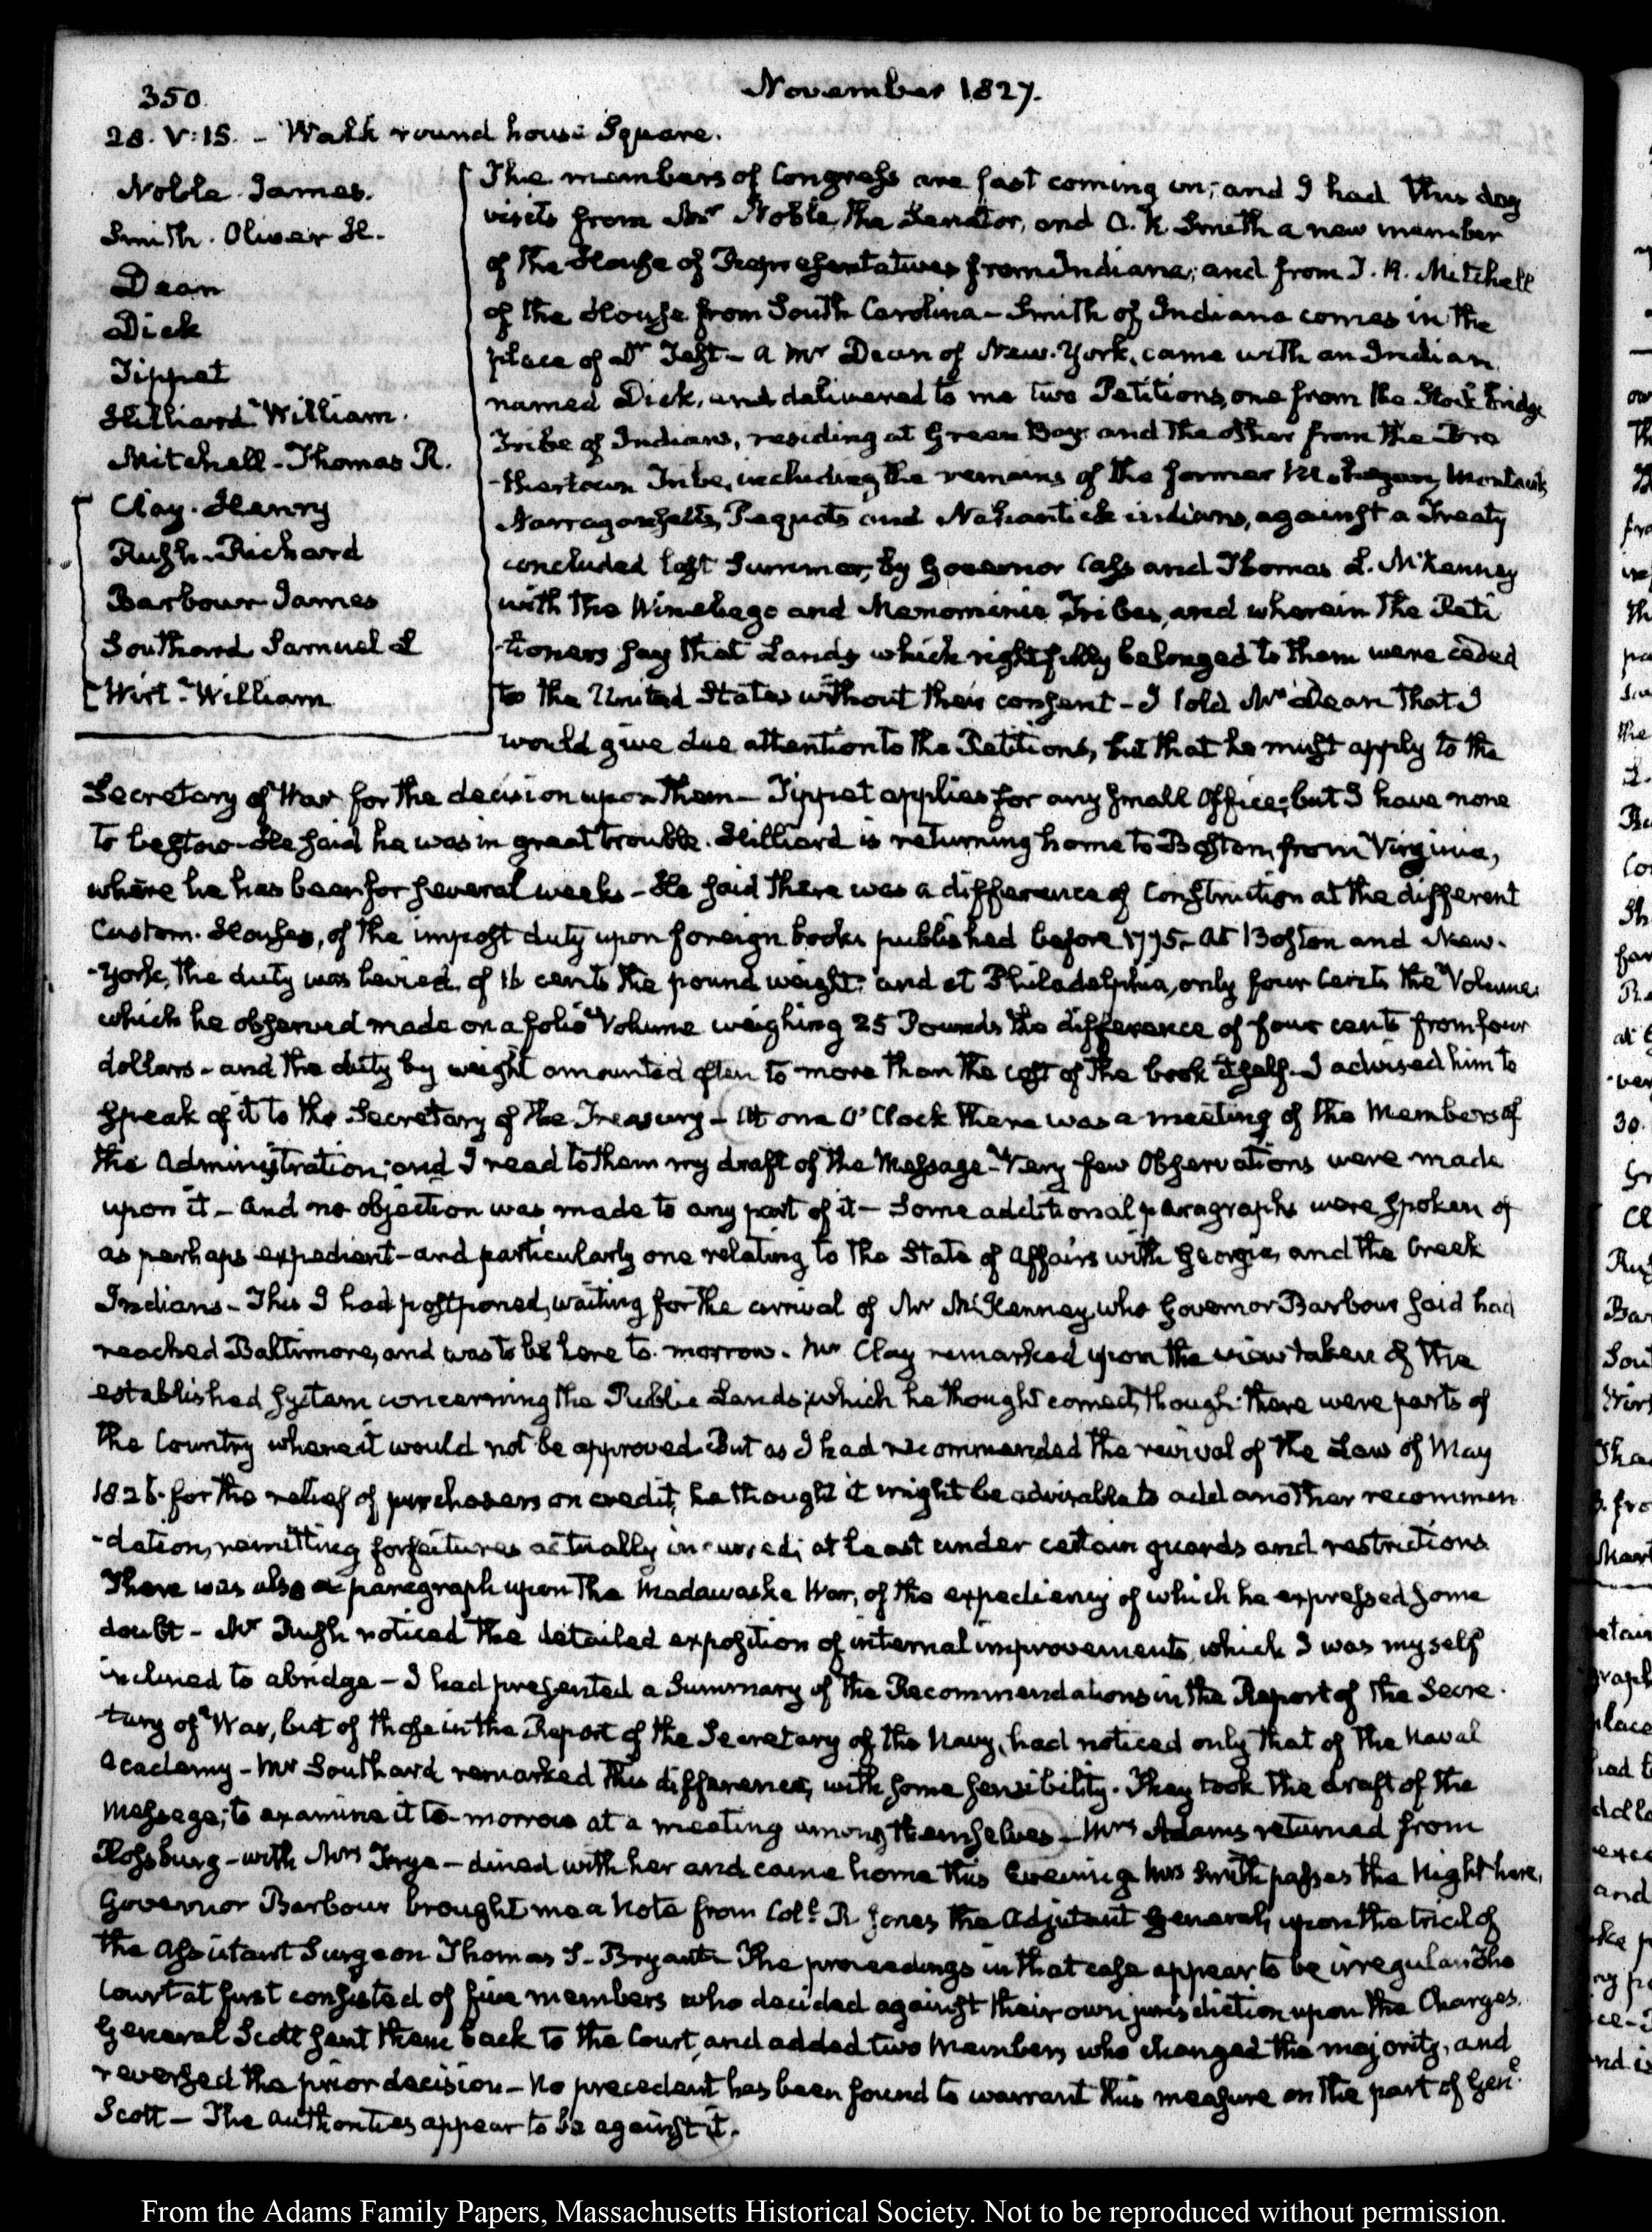 350.
November 1827.
28. V:15. - Walk round house Square.
Noble James.
Smith. Oliver H.
Dean
Dick
Tippet
Hilliard William.
Mitchell - Thomas R.
Clay. Henry
Rush. Richard
Barbour James
Southard Samuel L
Wirt - William
The members of Congress are fast coming in; and I had this day
visits from Mr Noble, the Senator, and O. H. Smith a new member
of the House of Representatives from Indiana; and from T. R. Mitchell
of the House from South Carolina - Smith of Indiana comes in the
place of Dr Test - a Mr Dean of New-York, came with an Indian
named Dick, and delivered to me two Petitions, one from the Stock bridge
Tribe of Indians, residing at Green Bay and the other from the Bro
-thertown Tribe, including the remains of the former Mohegan, Montauk
Narragansetts, Pequots and Nahantick indians, against a Treaty
concluded last Summer, by Governor Cass and Thomas L. McKenney
with the Winebago and Menominie Tribes, and wherein the Peti
-tioners say that Lands which rightfully belonged to them were ceded
to the United States without their consent - I told Mr Dean that I
would give due attention to the Petitions, but that he must apply to the
Secretary of War for the decision upon them - Tippet applies for any small Office; but I have none
to bestow - He said he was in great trouble. Hilliard is returning home to Boston from Virginia,
where he has been for several weeks - He said there was a difference of Construction at the different
Custom. Houses, of the impost duty upon foreign books published before 1775 - at Boston and New-
-York, the duty was levied of 16 cents the pound weight: and at Philadelphia, only four Cents the Volume,
which he observed made on a folio Volume weighing 25 Pounds the difference of four cents from four
dollars - and the duty by weight amounted often to more than the cost of the book itself - I advised him to
speak of it to the Secretary of the Treasury - At one O'Clock there was a meeting of the Members of
the Administration; and I read to them my draft of the Message - Very few Observations were made
upon it - and no objection was made to any part of it - Some additional paragraphs were spoken of
as perhaps expedient - and particularly one relating to the State of affairs with Georgia, and the Creek
Indians - This I had postponed, waiting for the arrival of Mr McKenney, who Governor Barbour said had
reached Baltimore, and was to be here to-morrow. Mr Clay remarked upon the view taken of the
established system concerning the Public Lands; which he thought correct, though there were parts of
the Country where it would not be approved. But as I had recommended the revival of the Law of May
1826. for the relief of purchasers on credit, he thought it might be advisable to add another recommen
-dation, remitting forfeitures actually incurred; at least under certain guards and restrictions
There was also a paragraph upon the Madawaska War, of the expediency of which he expressed some
doubt - Mr Rush noticed the detailed exposition of internal improvements, which I was myself
inclined to abridge - I had presented a Summary of the Recommendations in the Report of the Secre-
tary of War, but of those in the Report of the Secretary of the Navy, had noticed only that of the Naval
Academy - Mr Southard remarked this difference, with some sensibility. They took the draft of the
Message, to examine it to-morrow at a meeting among themselves - Mrs Adams returned from
Rossburg - with Mrs Frye - dined with her and came home this Evening. Mrs Smith passes the Night here,
Governor Barbour brought me a Note from Coll. R Jones the Adjutant General, upon the trial of
the assistant Surgeon Thomas S. Bryant - The proceedings in that case appear to be irregular. The
Court at first consisted of five members who decided against their own jurisdiction upon the Charges.
General Scott sent them back to the Court, and added two Members who changed the majority, and
reversed the prior decision - No precedent has been found to warrant this measure on the part of Genl.
Scott - The authorities appear to be against it.
From the Adams Family Papers, Massachusetts Historical Society. Not to be reproduced without permission.